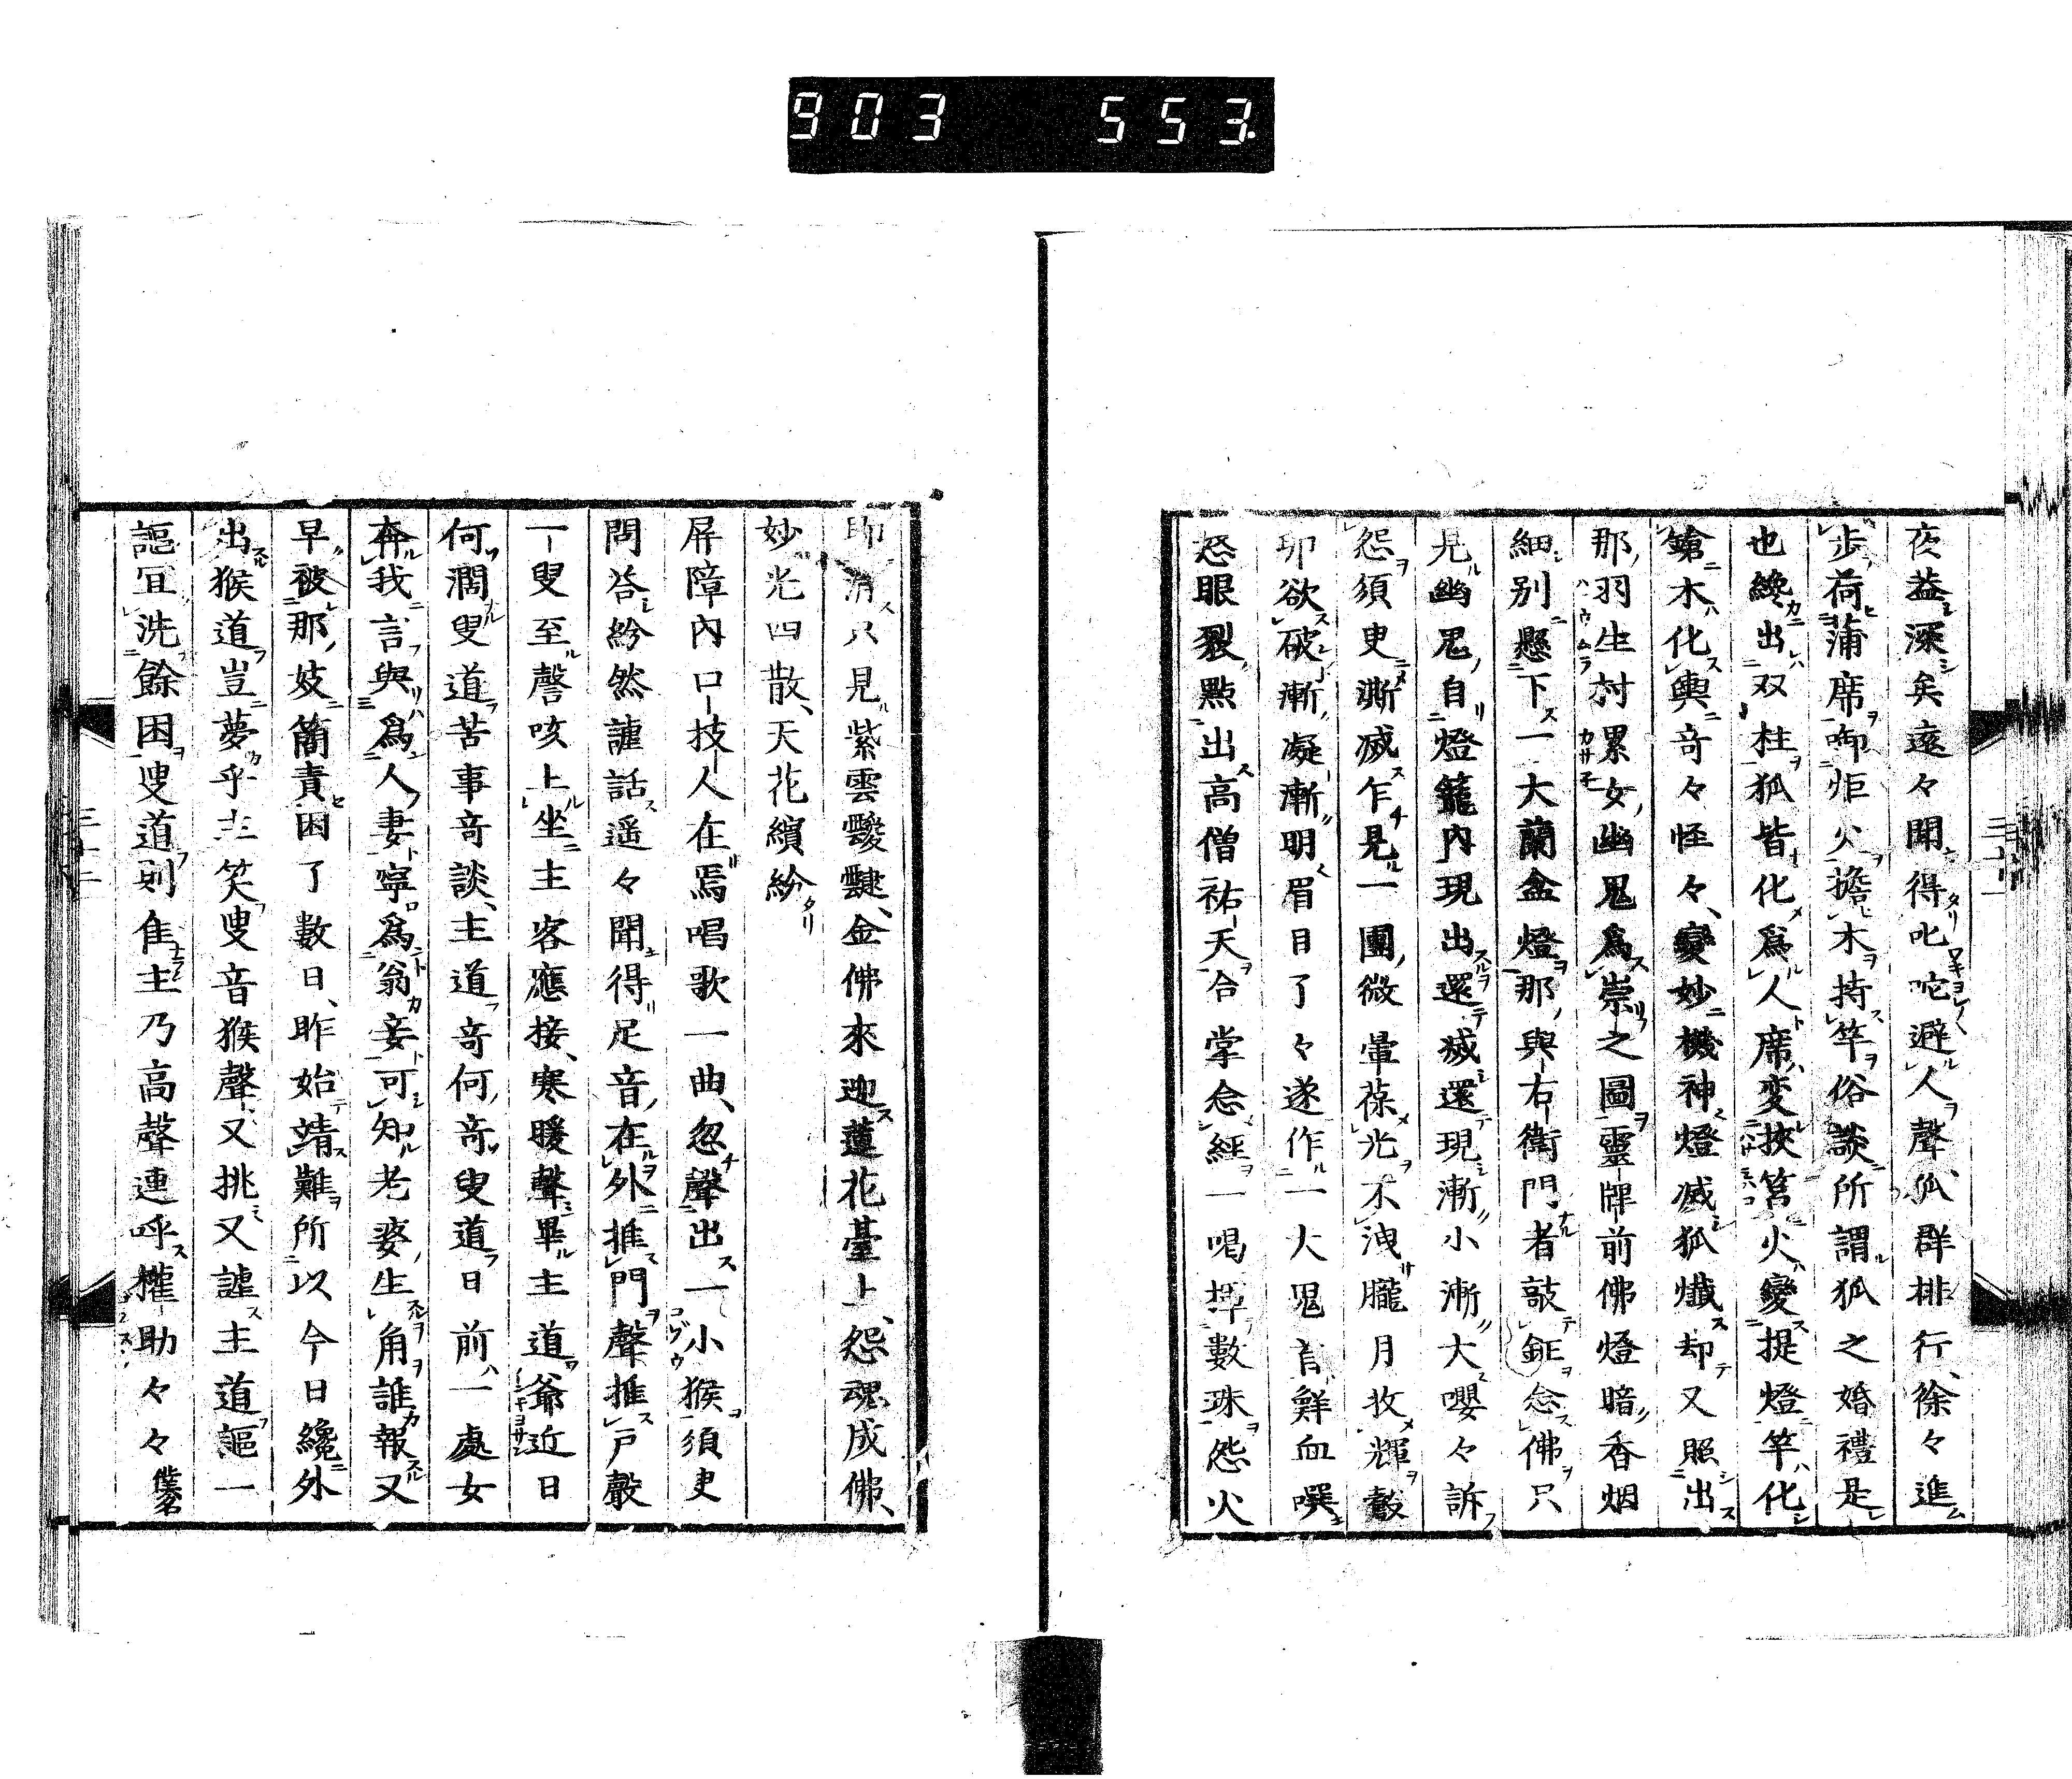 903 553
夜益深矣遠々聞得叱咜避人聲、狐群排行、徐々進
步荷蒲席啣炬火擔木持竿俗談所謂狐之婚禮是
也纔出双柱狐皆化爲人席変挾筥火變提燈竿化
鎗木化輿奇々怪々、變妙機神燈滅狐殲却又照出
那羽生村累女幽鬼爲崇之圖靈牌前佛燈暗香烟
細別懸下一大蘭盆燈那與右衛門者敲鉦念佛只
見幽鬼自燈籠內現出還滅還現漸小漸大嚶々訴
怨須臾漸滅乍見一團微暈葆光不洩朧月收輝㲉
卵欲破漸凝漸明眉目了々遂作一大鬼言鮮血噀
怒眼裂點出高僧祐天合掌念經一喝擇數珠怨火
即消只見紫雲靉靆、金佛來迎蓮花臺上、怨魂成佛、
妙光四散、天花繽紛
屏障內口技人在焉唱歌一曲、忽聲出一小猴須臾
問荅紛然謔話遥々聞得足音在外推門聲推戸聲
一叟至謦咳上坐主客應接、寒暖聲畢主道爺近日
何濶叟道苦事奇談、主道奇何奇叟道日前一處女
奔我言與爲人妻寧爲翁妾可知老婆生角誰報又
早被那妓簡責困了數日、昨始靖難所以今日纔外
出猴道豈夢乎主笑叟音猴聲又挑又謔主道謳一
謳冝洗餘困叟道則隹主乃高聲連呼權助々々僕名
三十二